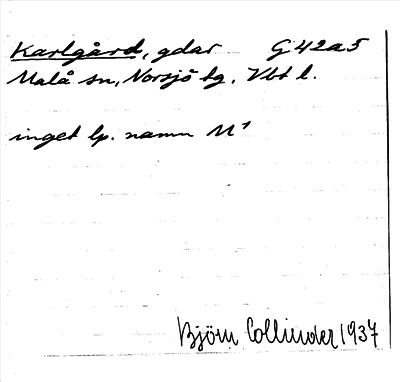 Karlgård, gdar G 42a5
Malå sn, Norsjö tg, Vbt l.
inget lp. namn M¹
Björn Collinder 1937